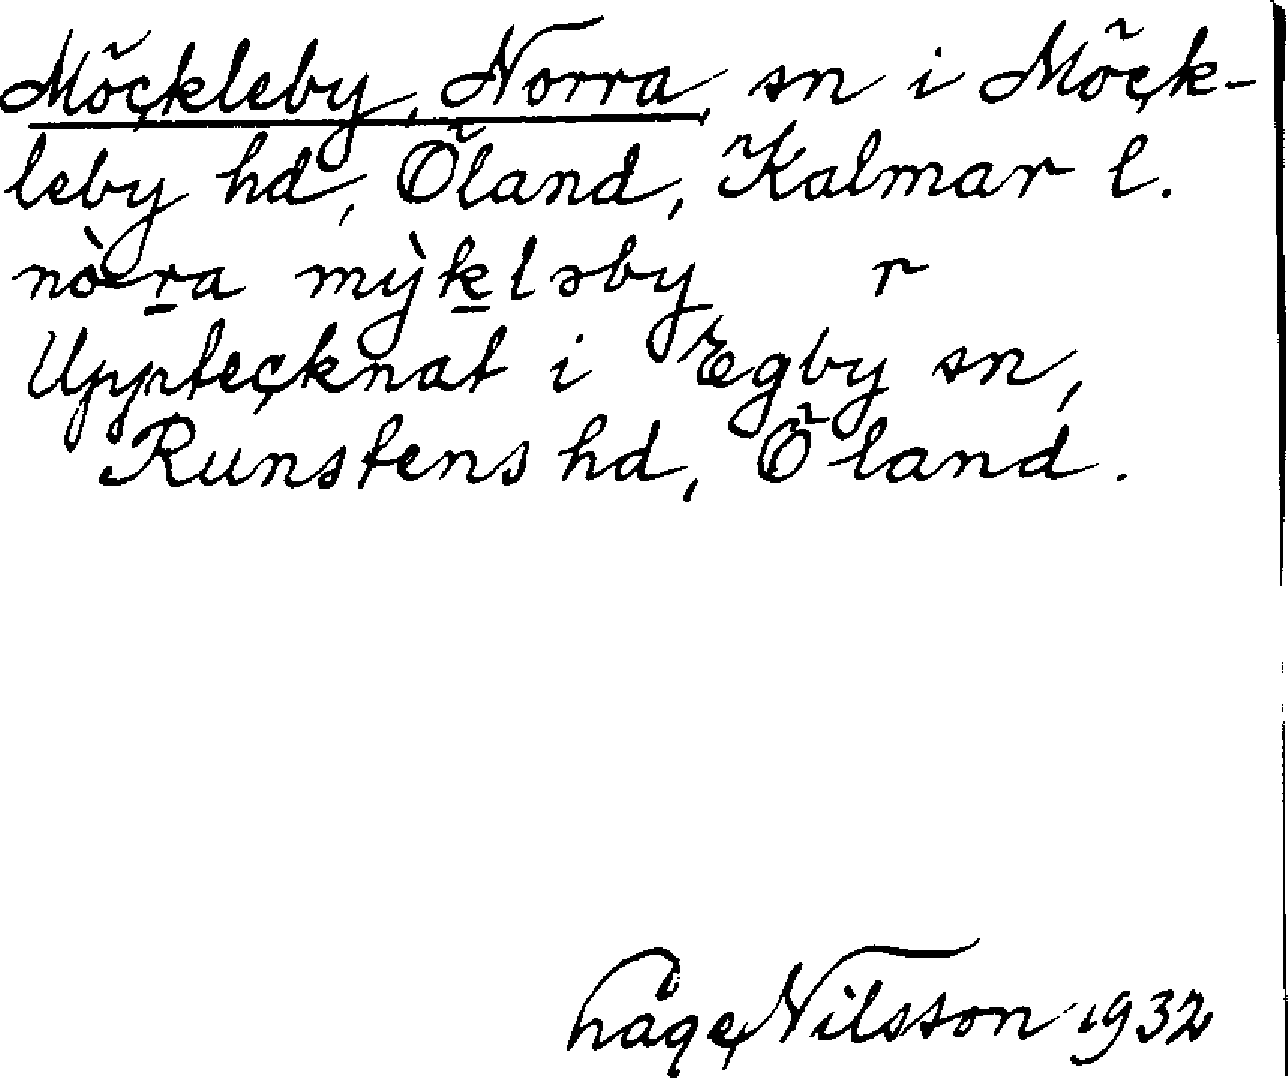 Möckleby, Norra, sn i Möck-
leby hd, Öland, Kalmar l.
nò̀r̲a mỳk̲ləby r
Upptecknat i Egby sn,
Runstens hd, Öland.
Nilsson 1932